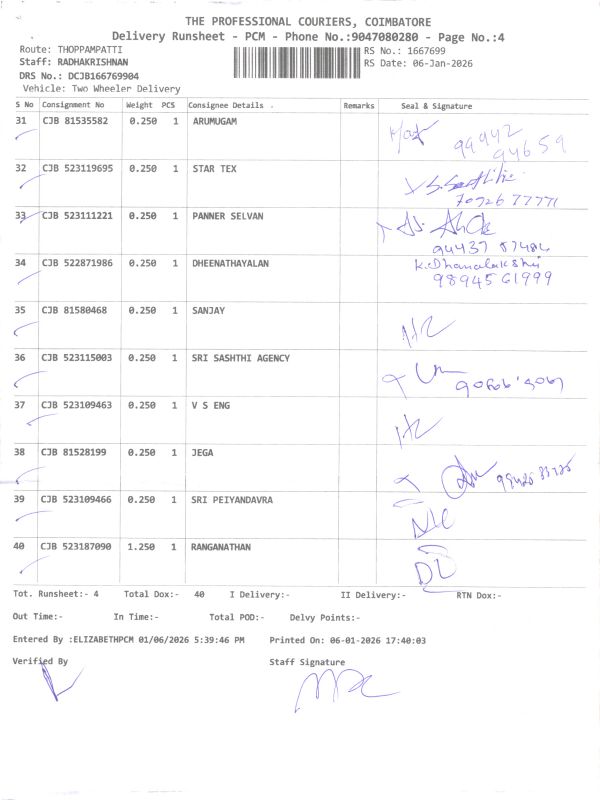 THE PROFESSIONAL COURIERS, COIMBATORE
Delivery Runsheet - PCM - Phone No.:9047080280 - Page No.:4
Route: THOPPAMPATTI RS No.: 1667699
Staff: RADHAKRISHNAN RS Date: 06-Jan-2026
DRS No.: DCJB166769904
Vehicle: Two Wheeler Delivery
S No Consignment No Weight PCS Consignee Details . Remarks Seal & Signature
31 CJB 81535582 0.250 1 ARUMUGAM
99942
94659
32 CJB 523119695 0.250 1 STAR TEX
70926 77771
33 CJB 523111221 0.250 1 PANNER SELVAN
94437 87484
34 CJB 522871986 0.250 1 DHEENATHAYALAN K.Dhanalakshmi
98945 61999
35 CJB 81580468 0.250 1 SANJAY
36 CJB 523115003 0.250 1 SRI SASHTHI AGENCY
37 CJB 523109463 0.250 1 V S ENG
38 CJB 81528199 0.250 1 JEGA
39 CJB 523109466 0.250 1 SRI PEIYANDAVRA
40 CJB 523187090 1.250 1 RANGANATHAN DL
Tot. Runsheet:- 4 Total Dox:- 40 I Delivery:- II Delivery:- RTN Dox:-
Out Time:- In Time:- Total POD:- Delvy Points:-
Entered By :ELIZABETHPCM 01/06/2026 5:39:46 PM Printed On: 06-01-2026 17:40:03
Verified By Staff Signature